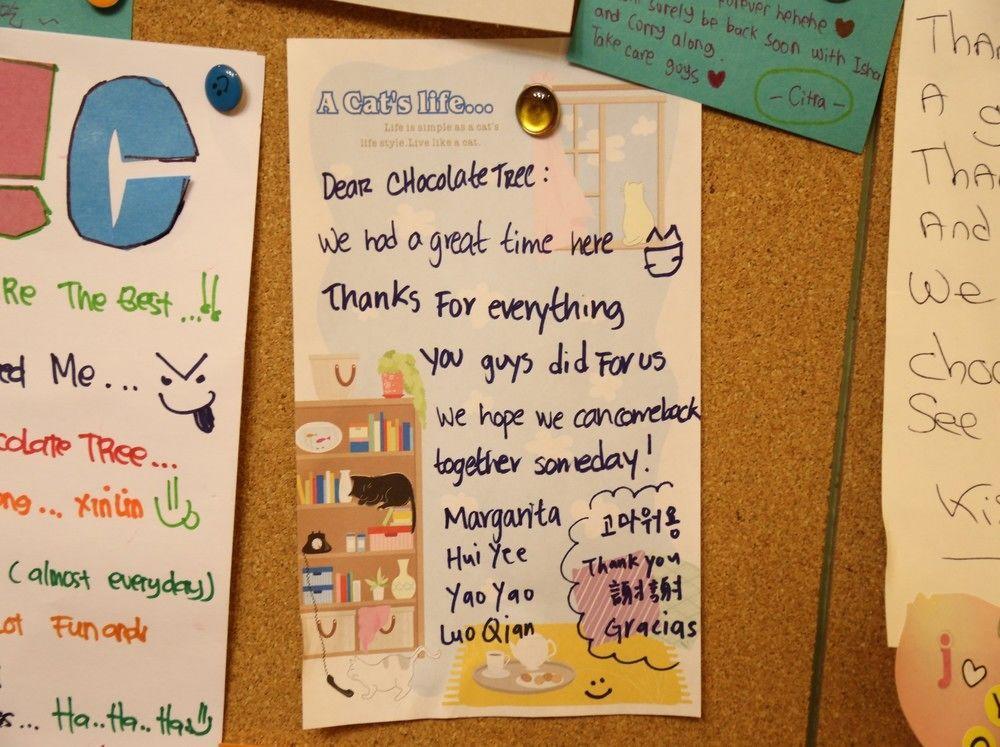 C
Re The Best ...!!
ed Me...
colate Tree...
ng... xinlin
(almost everyday)
Lot Fun and
s... Ha..Ha..Ha
A Cat's life...
Life is simple as a cat's
life style.Live like a cat.
Dear Chocolate Tree:
We had a great time here
Thanks For everything
you guys did For us
We hope we can come back
together someday!
Margarita
Hui Yee
Yao Yao
Luo Qian
고마워용
Thank you
謝謝
Gracias
forever hehehe
surely be back soon with Isha
and Corry along.
Take care guys
- Citra -
Tha
A g
Tha
And
We
choc
See
Ki
j